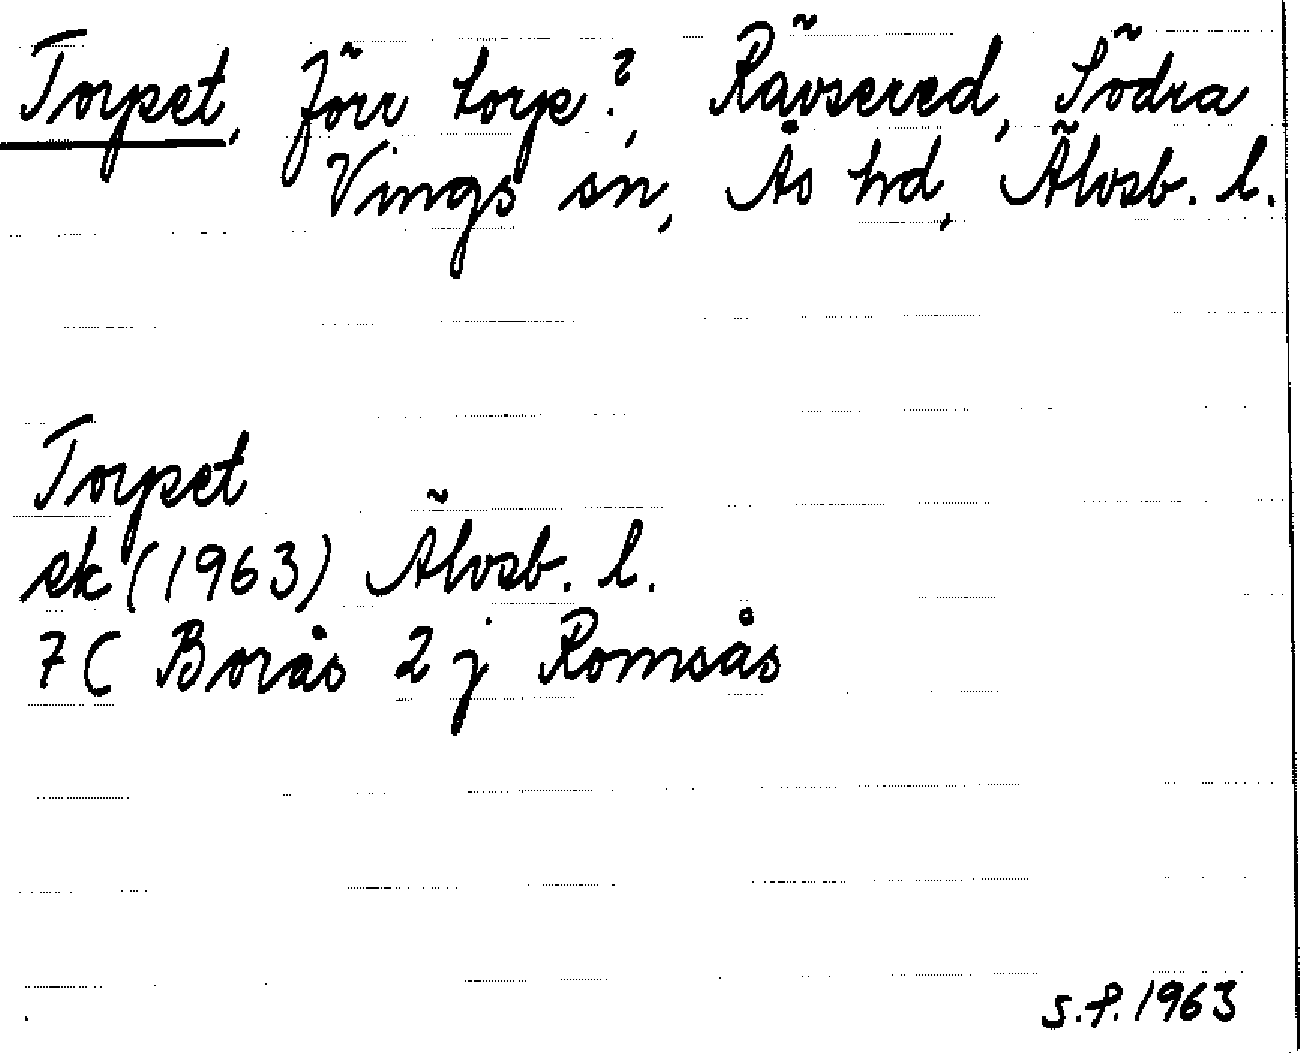 Torpet, förr torp?, Rävsered, Södra
Vings sn, Ås hd, Älvsb. l.
Torpet
ek (1963) Älvsb. l.
7C Borås 2 j Romsås
S.P. 1963